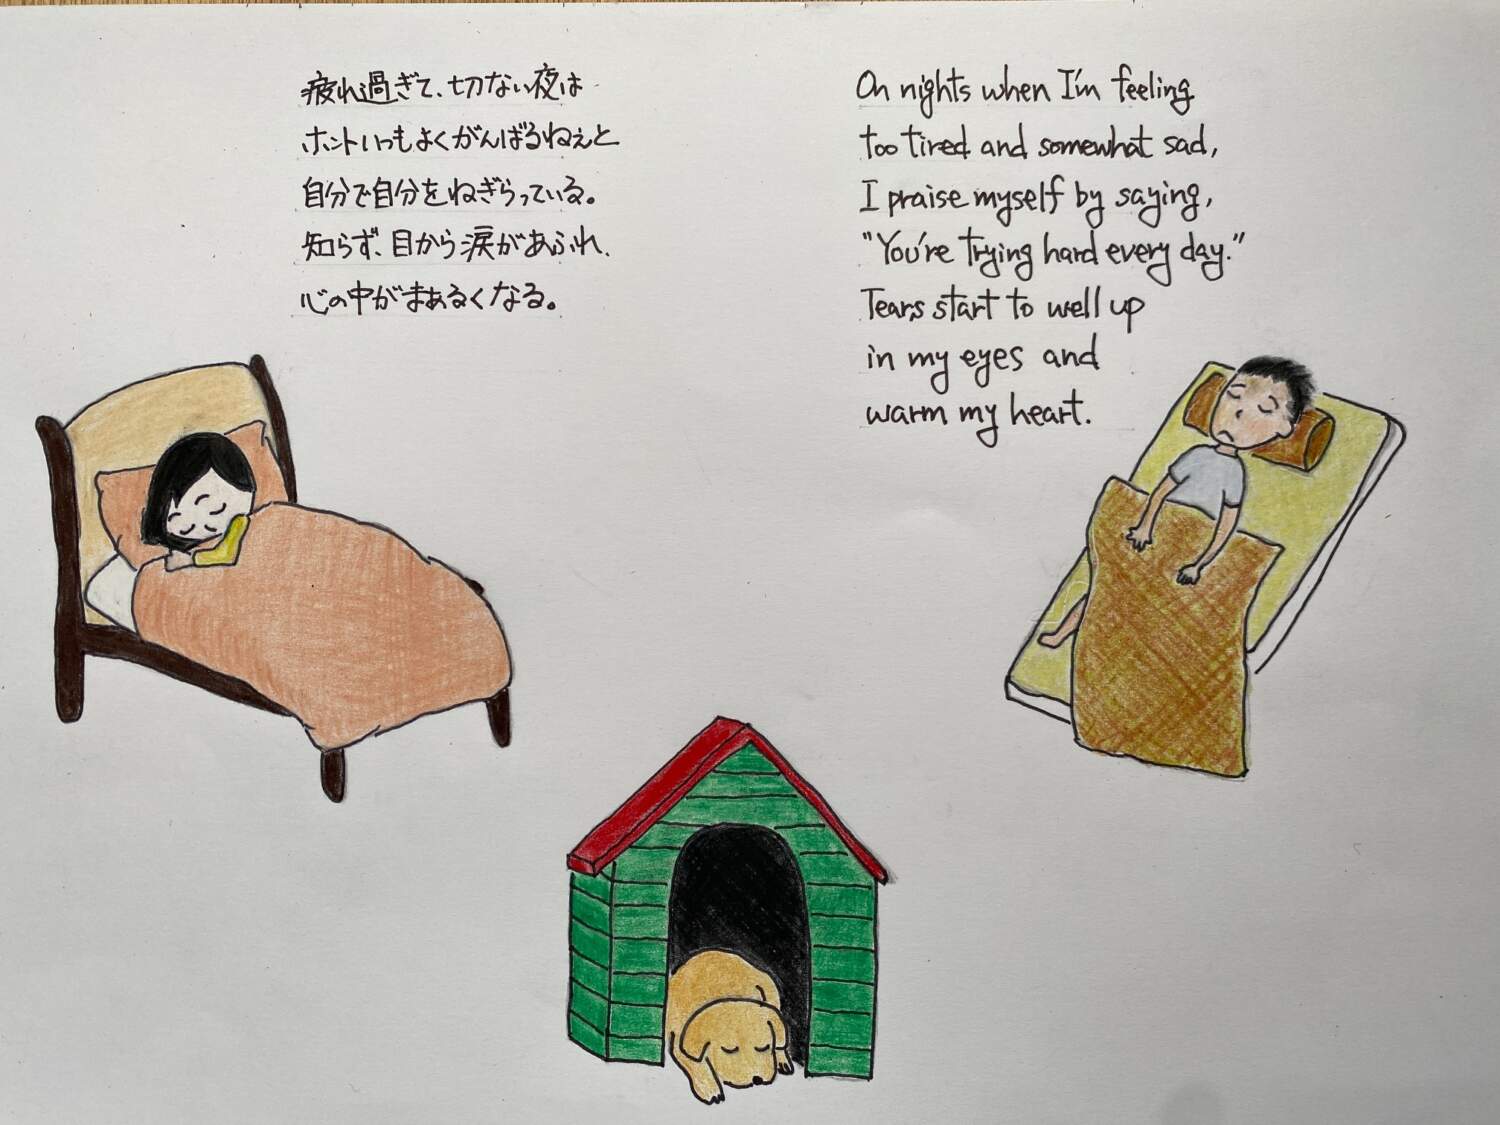 疲れ過ぎて、切ない夜は
ホントいつもよくがんばるねぇと
自分で自分をねぎらっている。
知らず、目から涙があふれ、
心の中がまぁるくなる。
On nights when I'm feeling
too tired and somewhat sad,
I praise myself by saying,
"You're trying hard every day."
Tears start to well up
in my eyes and
warm my heart.